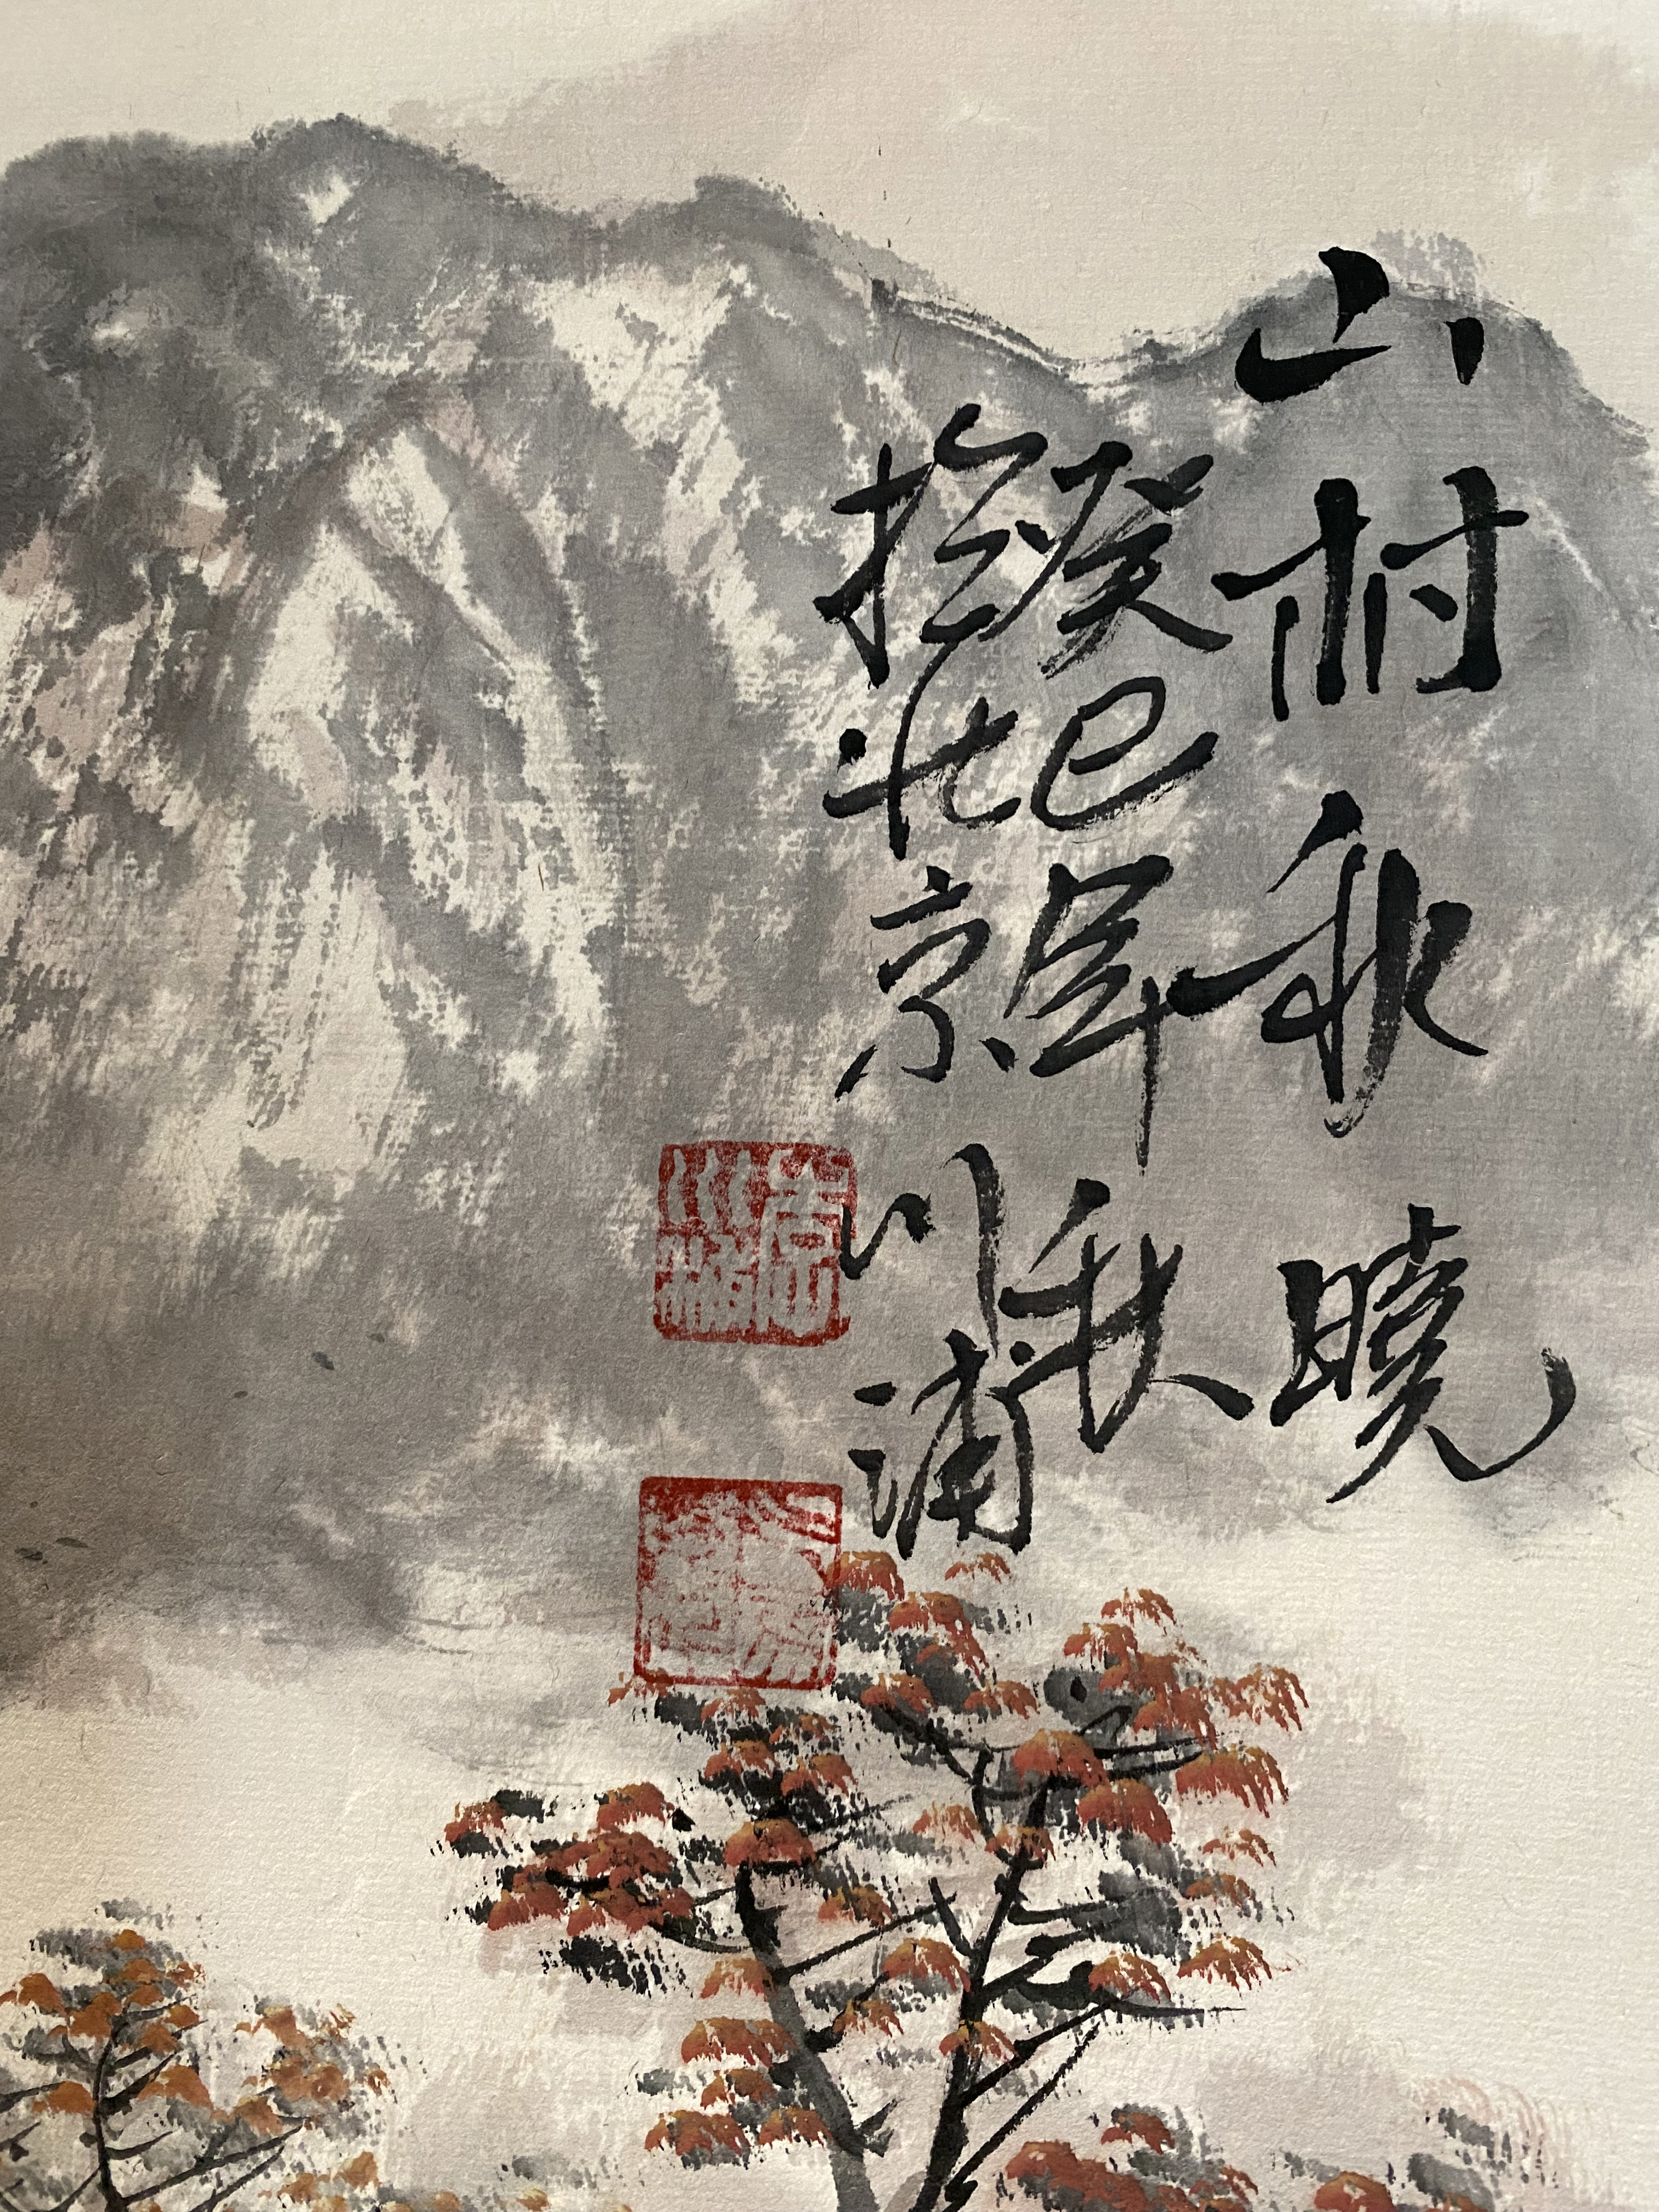 山村秋曉
癸巳年秋
於北京川浦